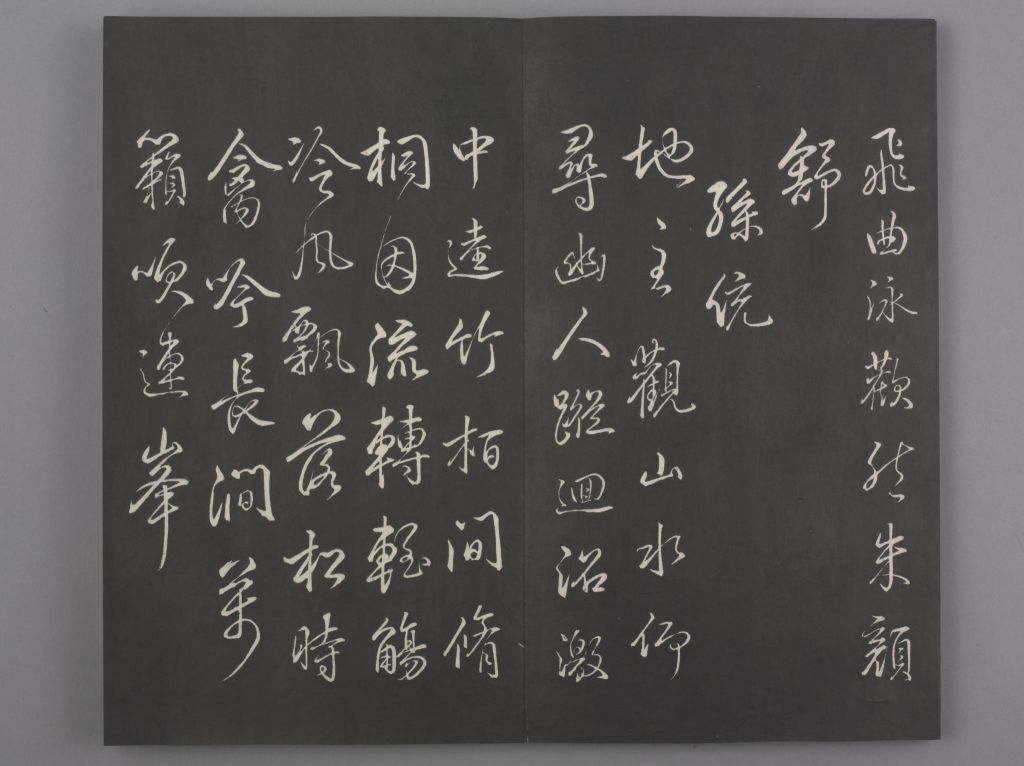 飛曲泳歡然朱顏
舒
孫統
地主觀山水仰
尋幽人蹤迴沼激
中逵竹栢間脩
桐因流轉輕觴
冷風飄落松時
禽吟長澗萬
籟吹連峯